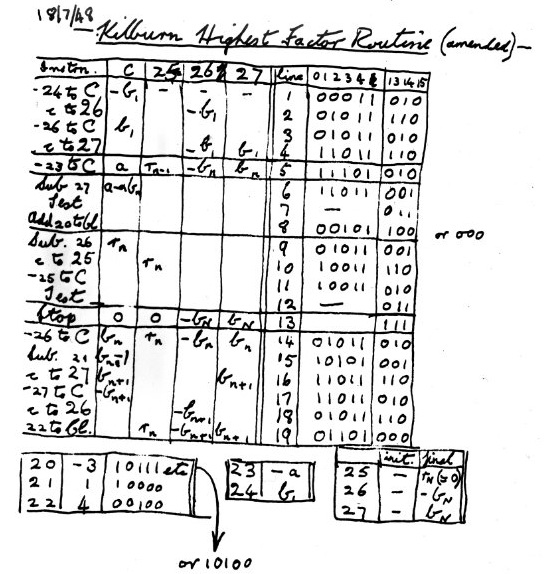 18/7/48
Kilburn Highest Factor Routine (amended)-
Instn. C 25 26 27 line 0 1 2 3 4 5 13 14 15
-24 to C -b₁ - - - 1 00011 010
c to 26 -b₁ 2 01011 110
-26 to C b₁ 3 01011 010
c to 27 -b₁ b₁ 4 11011 110
-23 to C a rₙ₋₁ -bₙ bₙ 5 11101 010
Sub 27 a-abₙ 6 11011 001
Test 7 — 011
add 20 to bl. 8 00101 100 or 000
Sub. 26 rₙ 9 01011 001
c to 25 rₙ 10 10011 110
-25 to C 11 10011 010
Test 12 — 011
Stop 0 0 -b_N b_N 13 111
-26 to C bₙ rₙ -bₙ bₙ 14 01011 010
Sub. 21 15 10101 001
c to 27 bₙ₊₁ bₙ₊₁ 16 11011 110
-27 to C -bₙ₊₁ 17 11011 010
c to 26 -bₙ₊₁ 18 01011 110
22 to bl. rₙ -bₙ₊₁ bₙ₊₁ 19 01101 000
20 -3 10111 etc
21 1 10000
22 4 00100
23 -a
24 b₁
init. final
25 - r_N (=0)
26 - -b_N
27 - b_N
or 10100